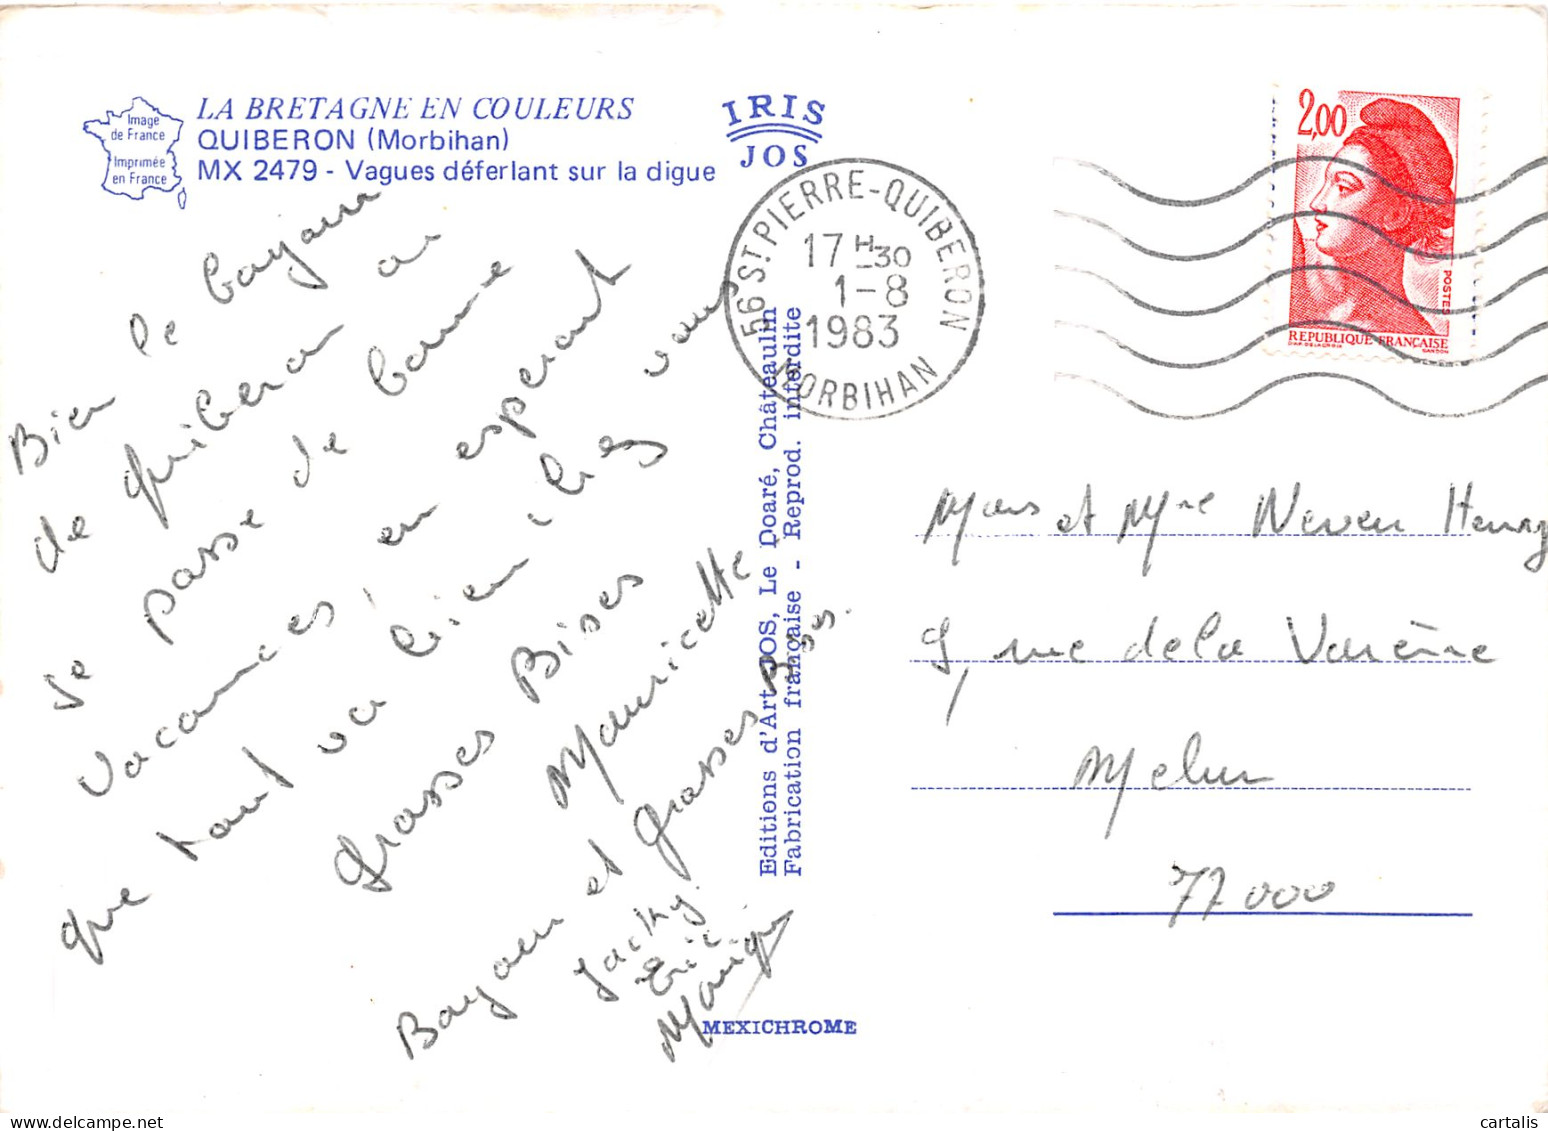 Image
de France
Imprimée
en France
LA BRETAGNE EN COULEURS
QUIBERON (Morbihan)
MX 2479 - Vagues déferlant sur la digue
IRIS
JOS
56 ST PIERRE-QUIBERON
17 H 30
1-8
1983
MORBIHAN
2,00
POSTES
REPUBLIQUE FRANÇAISE
GANDON
Bien le bonjour
de quiberon on
se passe de bonne
vacances, en esperant
que tout va bien chez vous
Grosses Bises
Mauricette
Bonjour et grosses Bses.
Jacky
Eric
Editions d'Art JOS, Le Doaré, Châteaulin
Fabrication française - Reprod. interdite
MEXICHROME
et Mme Neveu Henry
9, rue de la Varenne
Melun
77000
cartalis